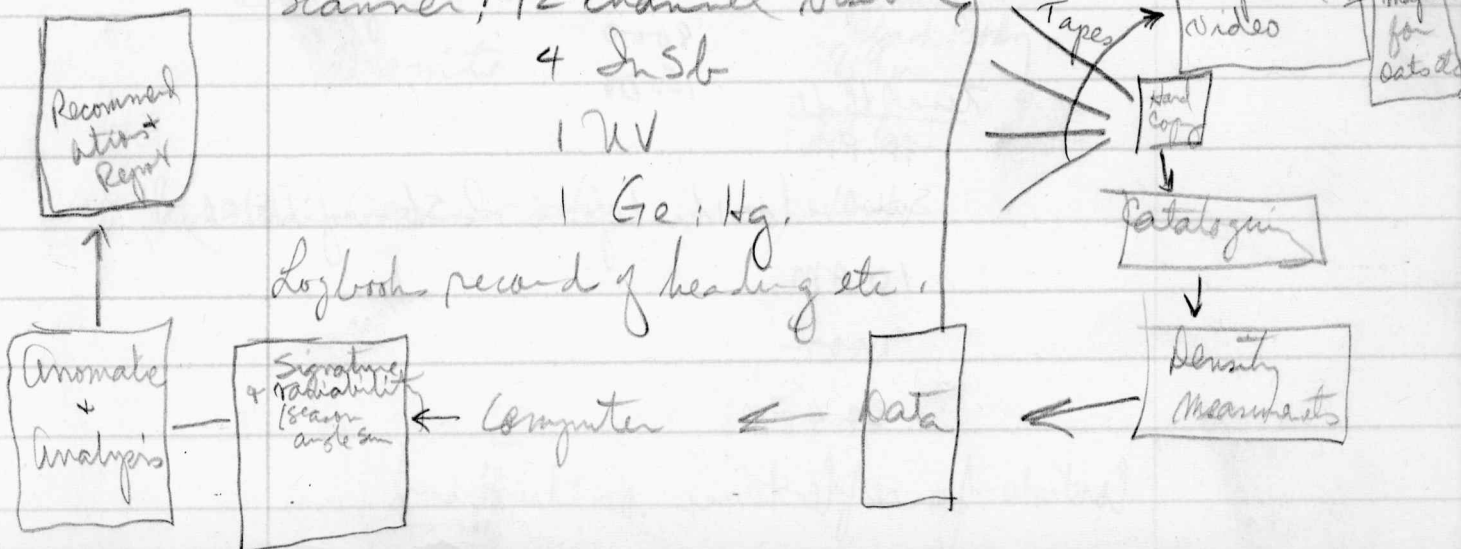 Scanner, 12 channel
4 InSb
1 UV
1 Ge:Hg.
Logbooks record of heading etc.
Tapes
Video
for
Data
Hard
Copy
Cataloguing
Density
Measurements
Data
Computer
Signature
+ variability
season
angle sun
Anomate
+
Analysis
Recommend
ations +
Report